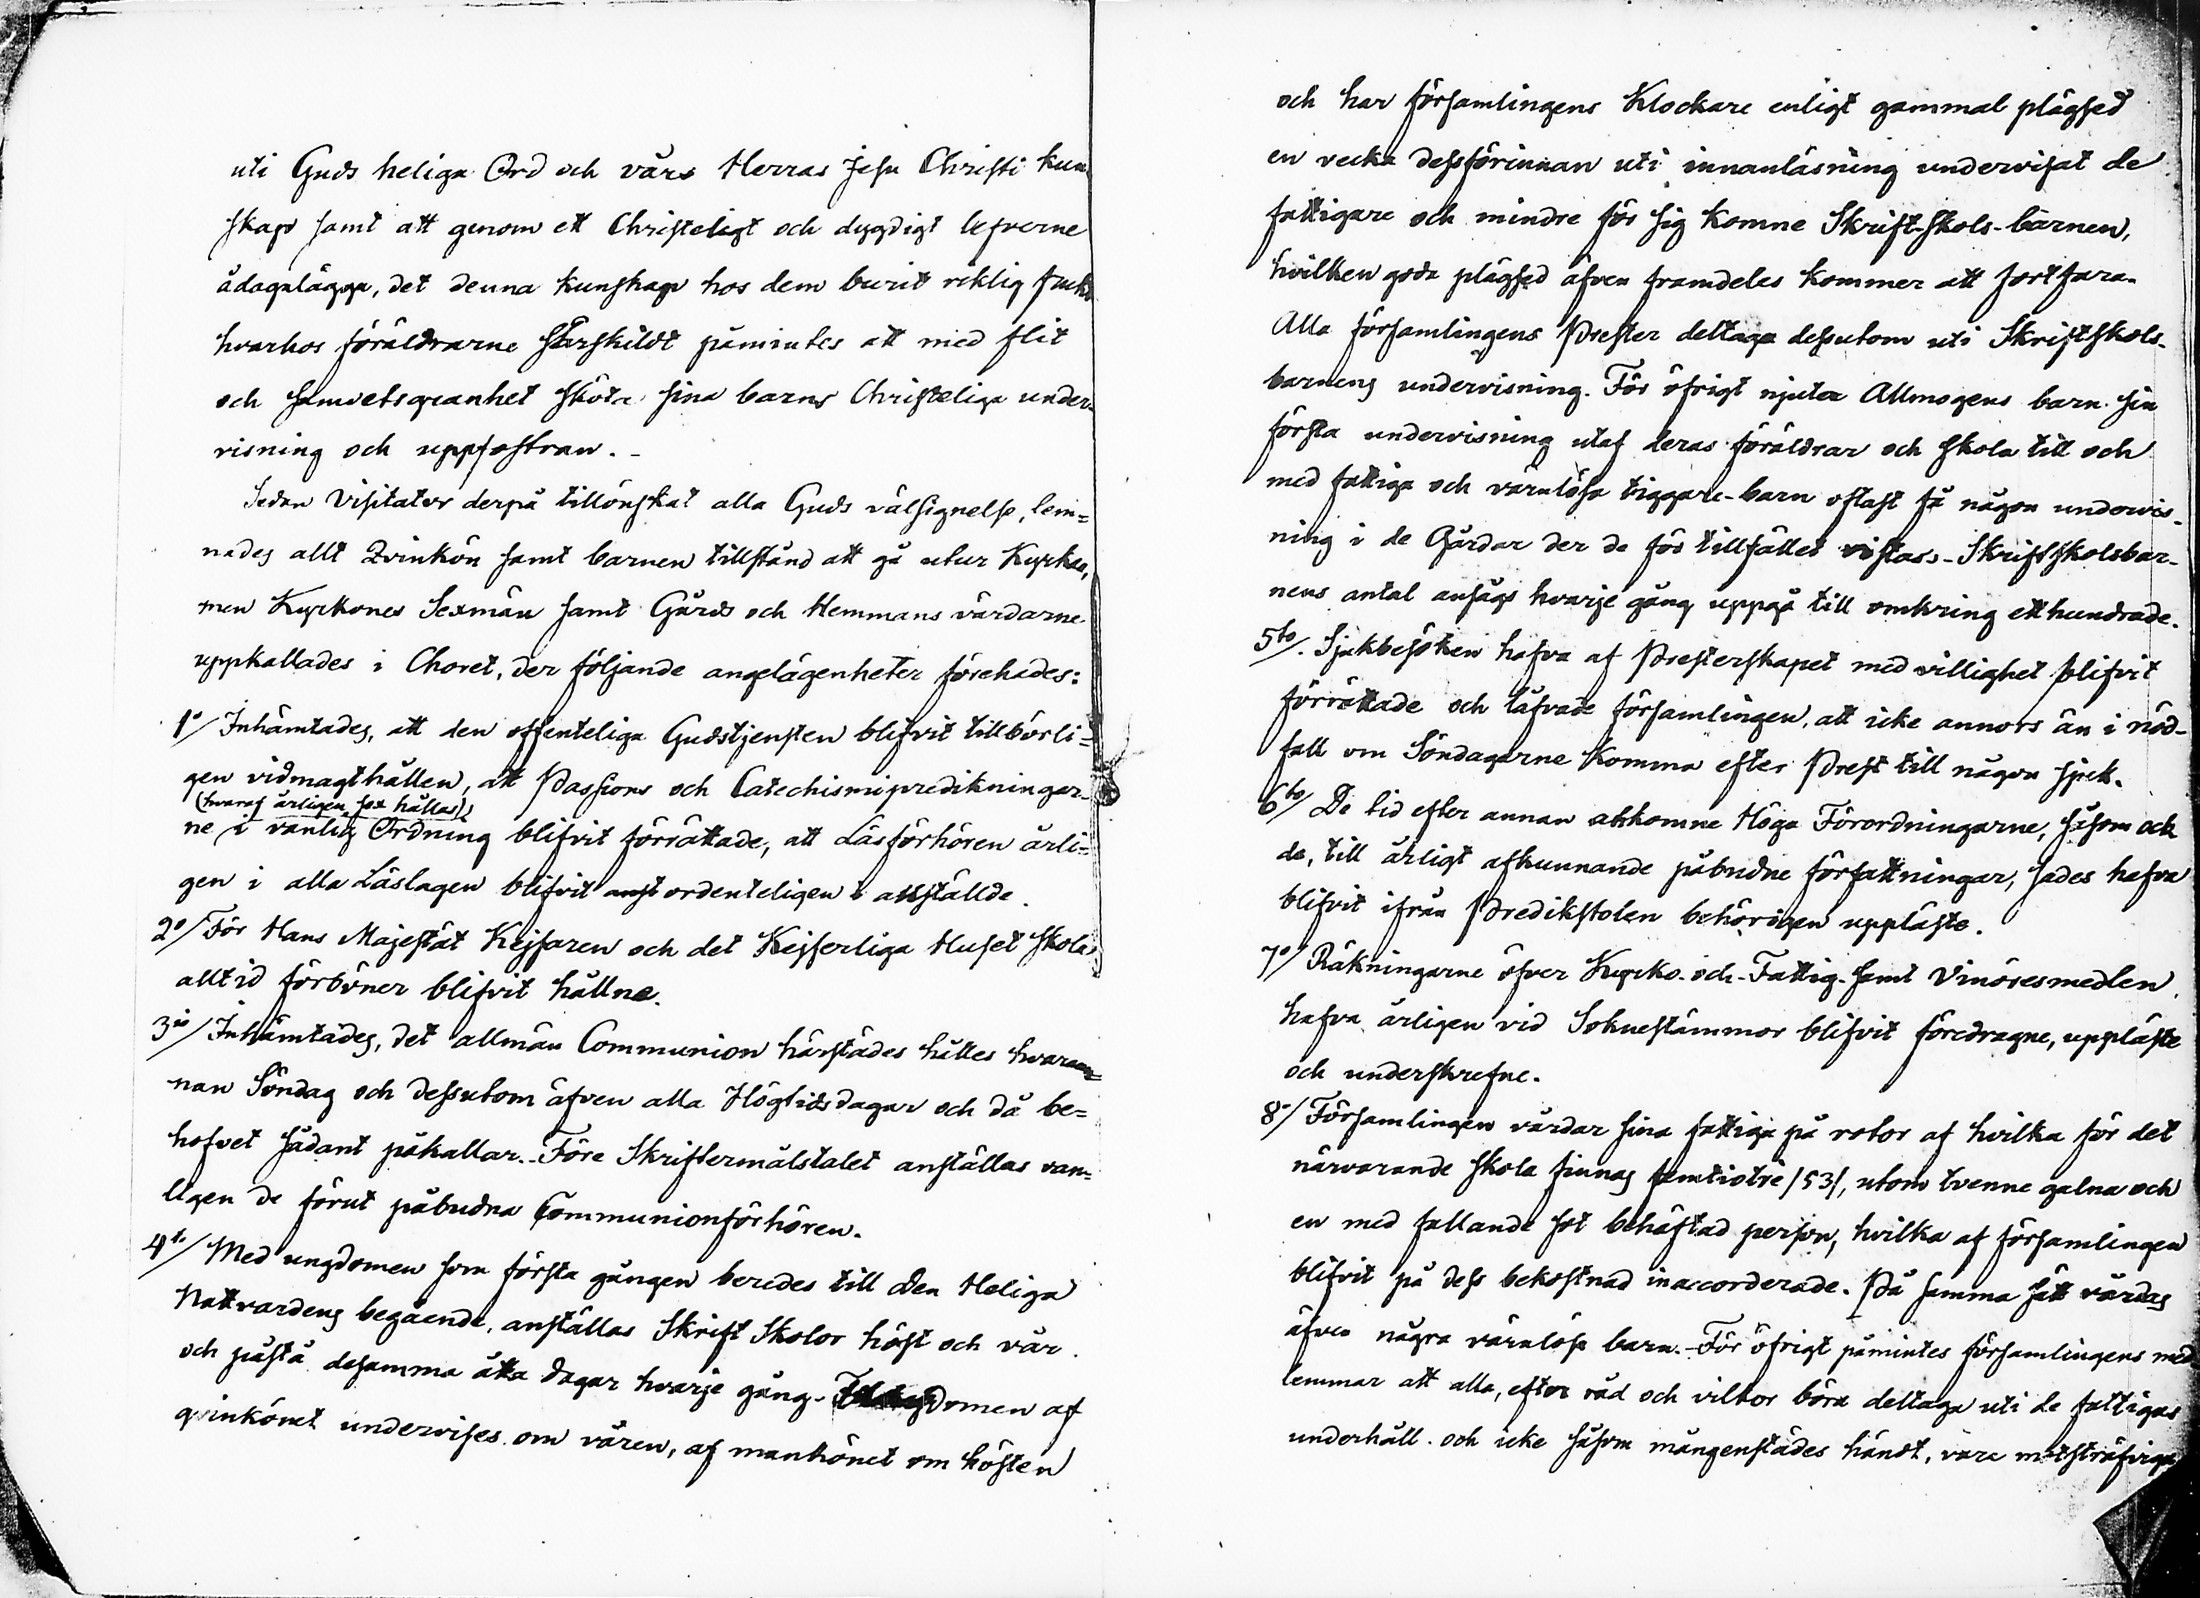 uti Guds heliga Ord och vårs Herras Jesu Christi kun
skap samt att genom ett Christeligt och dygdigt lefverne
ådagalägga, det denna kunskap hos dem burit riklig frukt
hvarhos föräldrarne särskildt påmintes att med flit
och samvetsgranhet sköta sina barns Christeliga under-
visning och uppfostran. -
Sedan Visitator derpå tillönskat alla Guds välsignelse, lem=
nades allt Qvinkön samt barnen tillstånd att gå utur Kyrkan,
men Kyrkones Sexmän samt Gårds och Hemmans värdarne
uppkallades i Choret, der följande angelägenheter förehades:
1º/ Inhämtades, att den offenteliga Gudstjensten blifvit tillbörli=
gen vidmagthållen, att Passions och Catechismipredikningar-
(hvaraf årligen sex hållas)
ne i vanlig Ordning blifvit förrättade, att Läsförhören årli=
gen i alla Läslagen blifvit anst ordenteligen anställde.
2º/ För Hans Majestät Kejsaren och det Kejserliga Huset skola
alltid förböner blifvit hållne.
3io/ Inhämtades, det allmän Communion härstädes hålles hvaran=
nan Söndag och dessutom äfven alla Högtidsdagar och då be=
hofvet sådant påkallar. - Före Skriftermålstalet anställas van-
ligen de förut påbudna Communionförhören.
4to/ Med ungdomen som första gången beredes till den Heliga
Nattvardens begående, anställas Skrift Skolor höst och vår
och påstå desamma åtta dagar hvarje gång - domen af
qvinkönet undervises om våren, af mankönet om hösten
och har församlingens Klockare enligt gammal plägsed
en vecka dessförinnan uti innanläsning undervisat de
fattigare och mindre för sig komne Skrift-Skols-barnen,
hvilken goda plägsed äfven framdeles kommer att fortfara.
Alla församlingens Prester deltaga dessutom uti Skriftskols-
barnens undervisning. För öfrigt njuta Allmogens barn sin
första undervisning utaf deras föräldrar och skola till och
med fattiga och värnlösa tiggare-barn oftast få någon undervis-
ning i de Gårdar der de för tillfället vistas. - Skriftskolsbar-
nens antal ansågs hvarje gång uppgå till omkring ett hundrade.
5to/. Sjukbesöken hafva af Presterskapet med villighet blifvit
förrättade och låfvade församlingen, att icke annors än i nöd-
fall om Söndagarne komma efter Prest till någon sjuk.
6to/ De tid efter annan ankomne Höga Förordningarne, såsom ock
de, till årligt afkunnande påbudne författningar, sades hafva
blifvit ifrån Predikstolen behörigen uppläste.
7º/ Räkningarne öfver Kyrko- och Fattig- samt Vinöresmedlen
hafva årligen vid Soknestämmor blifvit föredragne, uppläste
och underskrefne.
8º/ Församlingen vårdar sina fattiga på rotor af hvilka för det
närvarande skola finnas femtiotre /53/, utom tvenne galna och
en med fallande sot behäftad person, hvilka af församlingen
blifvit på dess bekostnad inaccorderade. På samma sätt vårdas
äfven några värnlösa barn. - För öfrigt påmintes församlingens med
lemmar att alla, efter råd och vilkor böra deltaga uti de fattigas
underhåll och icke såsom mångenstädes händt, vara motsträfviga